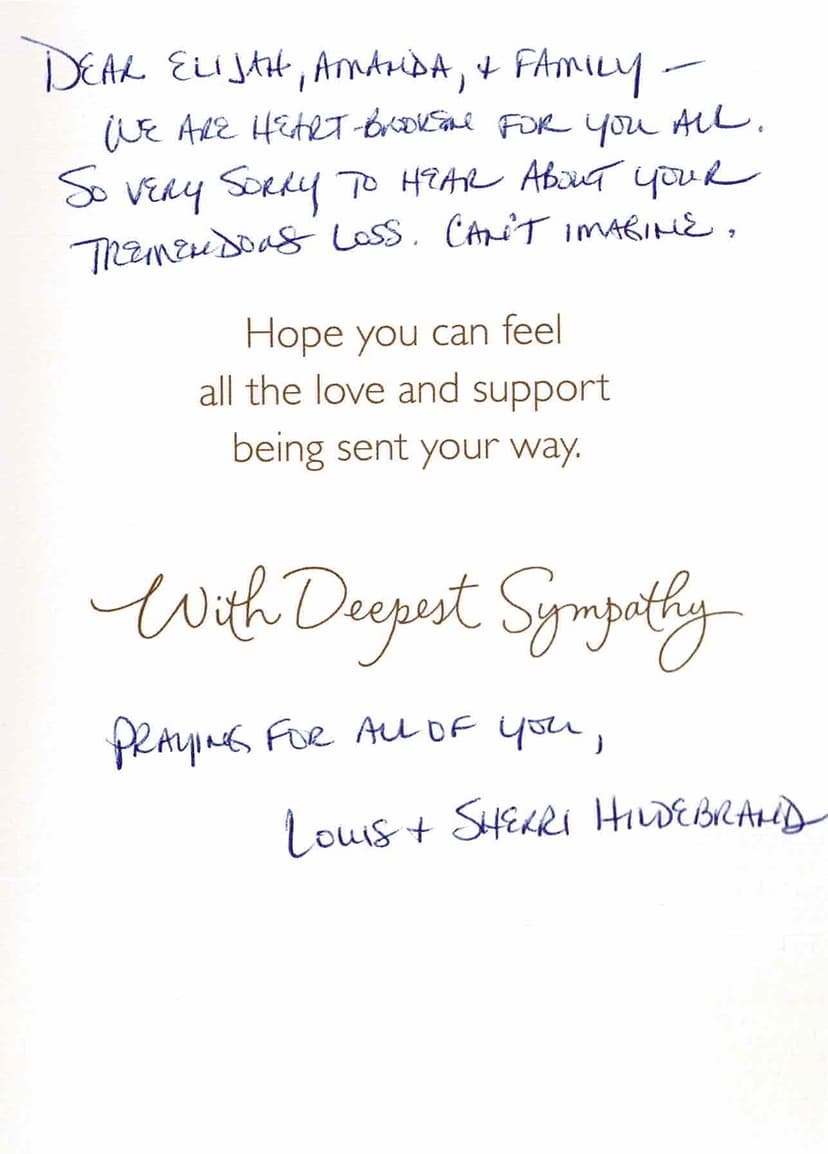 DEAR ELIJAH, AMANDA, + FAMILY —
WE ARE HEART-BROKEN FOR YOU ALL.
SO VERY SORRY TO HEAR ABOUT YOUR
TREMENDOUS LOSS. CAN'T IMAGINE.
Hope you can feel
all the love and support
being sent your way.
With Deepest Sympathy
PRAYING FOR ALL OF YOU,
LOUIS + SHERRI HILDEBRAND